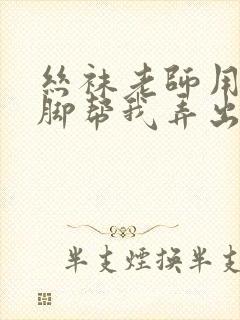 絲袜老師用
脚幫我弄出
半支煙換半支